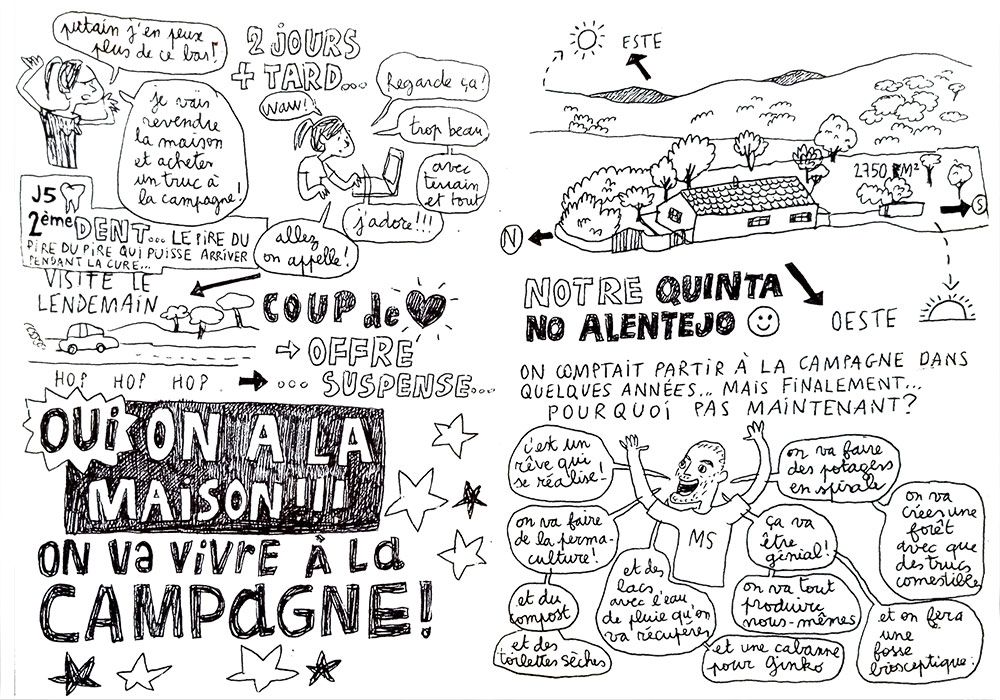 putain j'en peux
plus de ce bras!
je vais
revendre
la maison
et acheter
un truc à
la campagne!
J5
2ème DENT... LE PIRE DU
PIRE DU PIRE QUI PUISSE ARRIVER
PENDANT LA CURE...
2 JOURS
+ TARD...
Waw!
Regarde ça!
trop beau
avec
terrain
et tout
j'adore!!!
allez
on appelle!
VISITE LE
LENDEMAIN
HOP HOP HOP
COUP de
⇨ OFFRE
... SUSPENSE...
OUi ON A LA
MAISON!!!
ON Va ViVRE À La
CAMPaGNE!
ESTE
2750 KM²
N
S
NOTRE QUINTA
NO ALENTEJO
OESTE
ON COMPTAIT PARTIR À LA CAMPAGNE DANS
QUELQUES ANNÉES... MAIS FINALEMENT...
POURQUOI PAS MAINTENANT?
c'est un
rêve qui
se réalise!
on va faire
des potagers
en spirale
on va faire
de la perma-
culture!
MS
ça va
être
génial!
on va
créer une
forêt
avec que
des trucs
comestible
et du
compost
et des
lacs
avec l'eau
de pluie qu'on
va récupérer
on va tout
produire
nous-mêmes
et on fera
une
fosse
bioseptique!
et des
toilettes sèches
et une cabanne
pour Ginko